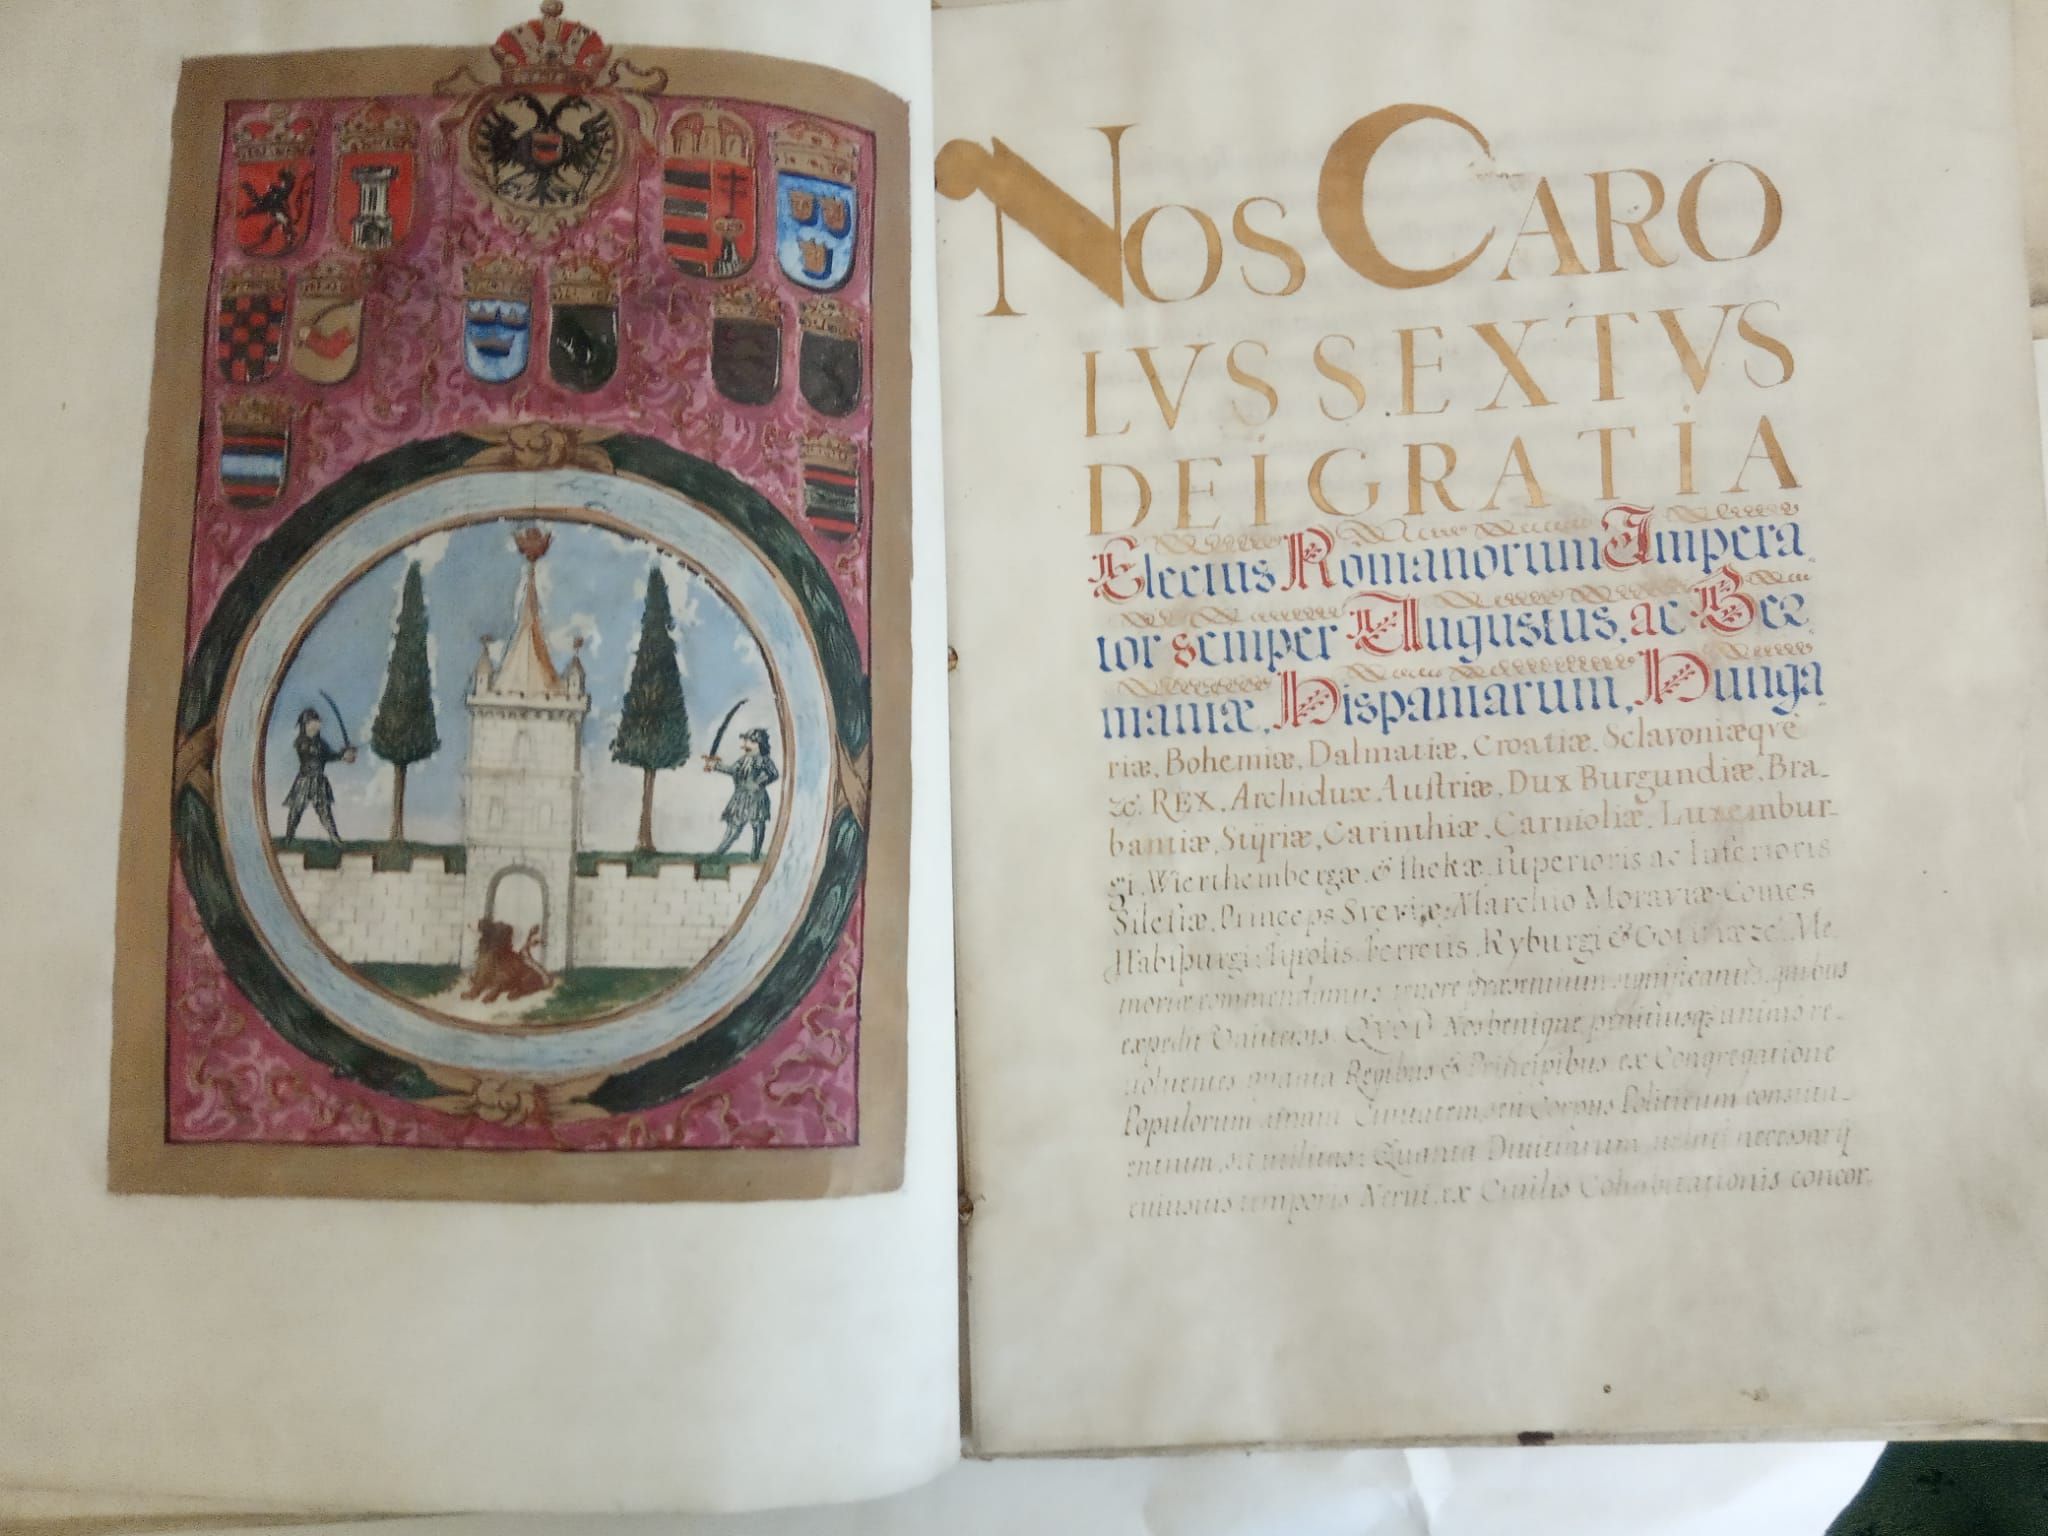 NOS CARO
LVS SEXTVS
DEI GRATIA
Electus Romanorum Impera
tor semper Augustus, ac Ger
maniæ, Hispaniarum, Hunga
riæ, Bohemiæ, Dalmatiæ, Croatiæ, Sclavoniæqve
&c. REX, Archidux Austriæ, Dux Burgundiæ, Bra-
bantiæ, Styriæ, Carinthiæ, Carnioliæ, Luxembur-
gi, Wierthembergæ, & Thekæ, superioris ac Inferioris
Silesiæ, Princeps Sveviæ, Marchio Moraviæ, Comes
Habspurgi, Tyrolis, Ferretis, Kyburgi & Goritiæ &c. Me
moriæ commendamus, tenore præsentium significantes, quibus
expedit Universis. QVOD Nos benigne, penitiusq; animo re-
volventes, quanta Regibus & Principibus, ex Congregatione
Populorum, Civitatem, seu Corpus Politicum constitu-
entium, sit utilitas: Quanta necessarij
cujusvis temporis Nervi, ex Civilis Cohabitationis concor